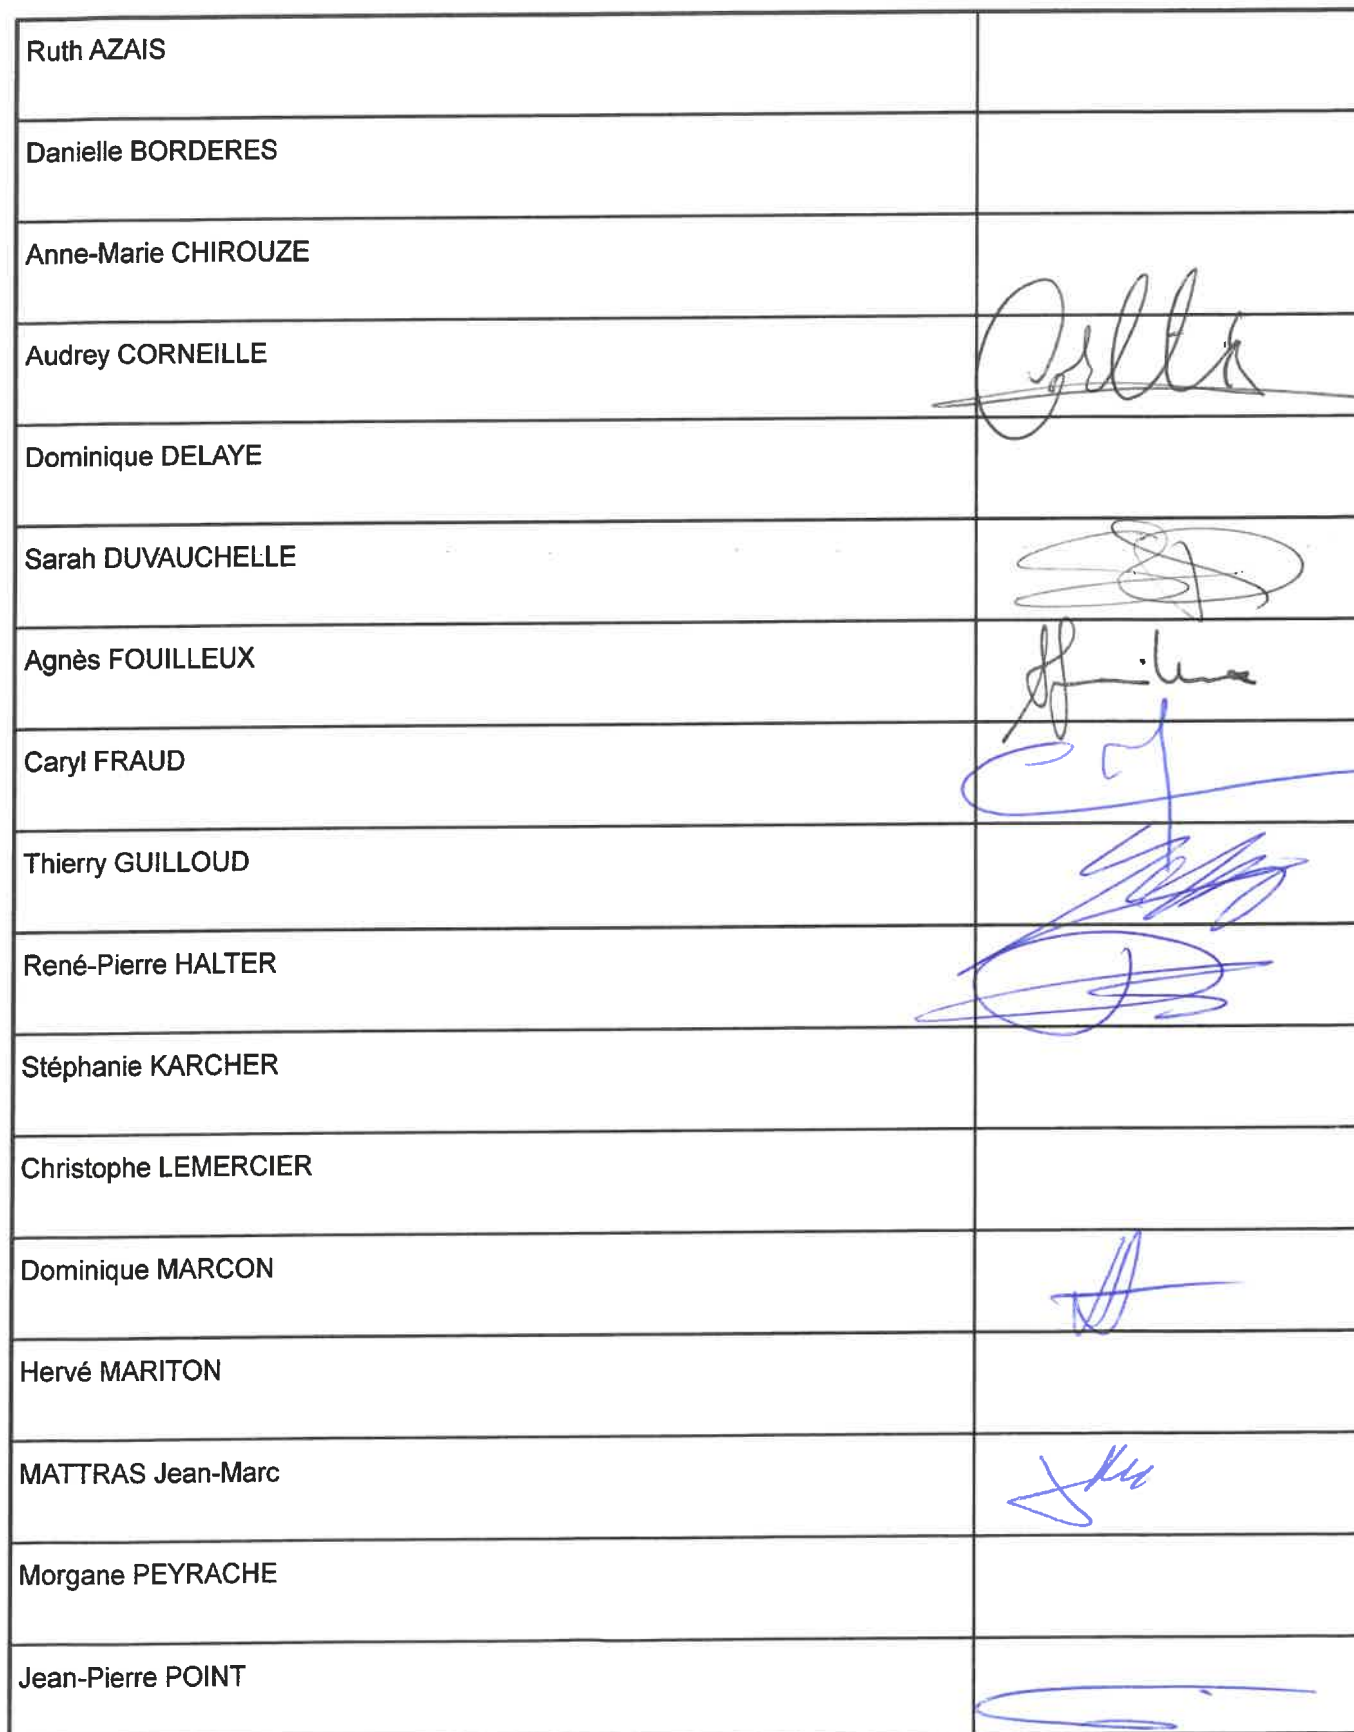 Ruth AZAIS
Danielle BORDERES
Anne-Marie CHIROUZE
Audrey CORNEILLE
Dominique DELAYE
Sarah DUVAUCHELLE
Agnès FOUILLEUX
Caryl FRAUD
Thierry GUILLOUD
René-Pierre HALTER
Stéphanie KARCHER
Christophe LEMERCIER
Dominique MARCON
Hervé MARITON
MATTRAS Jean-Marc
Morgane PEYRACHE
Jean-Pierre POINT